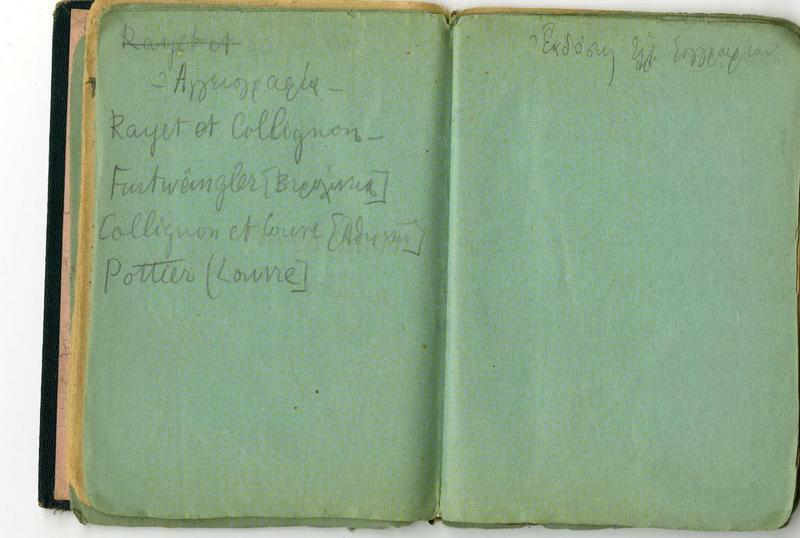 Rayet et
- Ἀγγειογραφία -
Rayet et Collignon -
Furtwängler [Βερολίνου]
Collignon et Couve [Ἀθηνῶν]
Pottier [Louvre]
Ἐκδόσεις Ἑλ. Συγγραφέων